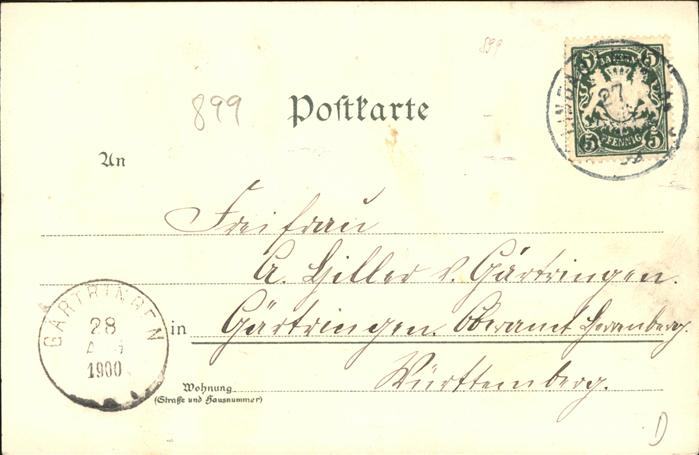 899
899
Postkarte
BAYERN
5 5
5 PFENNIG 5
LINDAU
27
An
Freifrau
A. Hiller v. Gärtringen.
in Gärtringen. Oberamt Herrenberg.
Württemberg.
Wohnung
(Straße und Hausnummer)
GÄRTRINGEN
28
1900
D